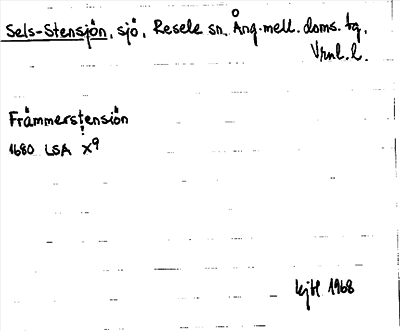 Sels-Stensjön, sjö, Resele sn. Ång.mell. doms. tg.
Vrnl. l.
Främmerstensiön
1680 LSA X9
1968